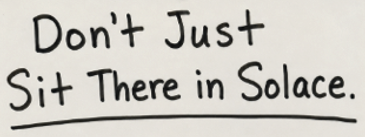 Don't Just
Sit There in Solace.